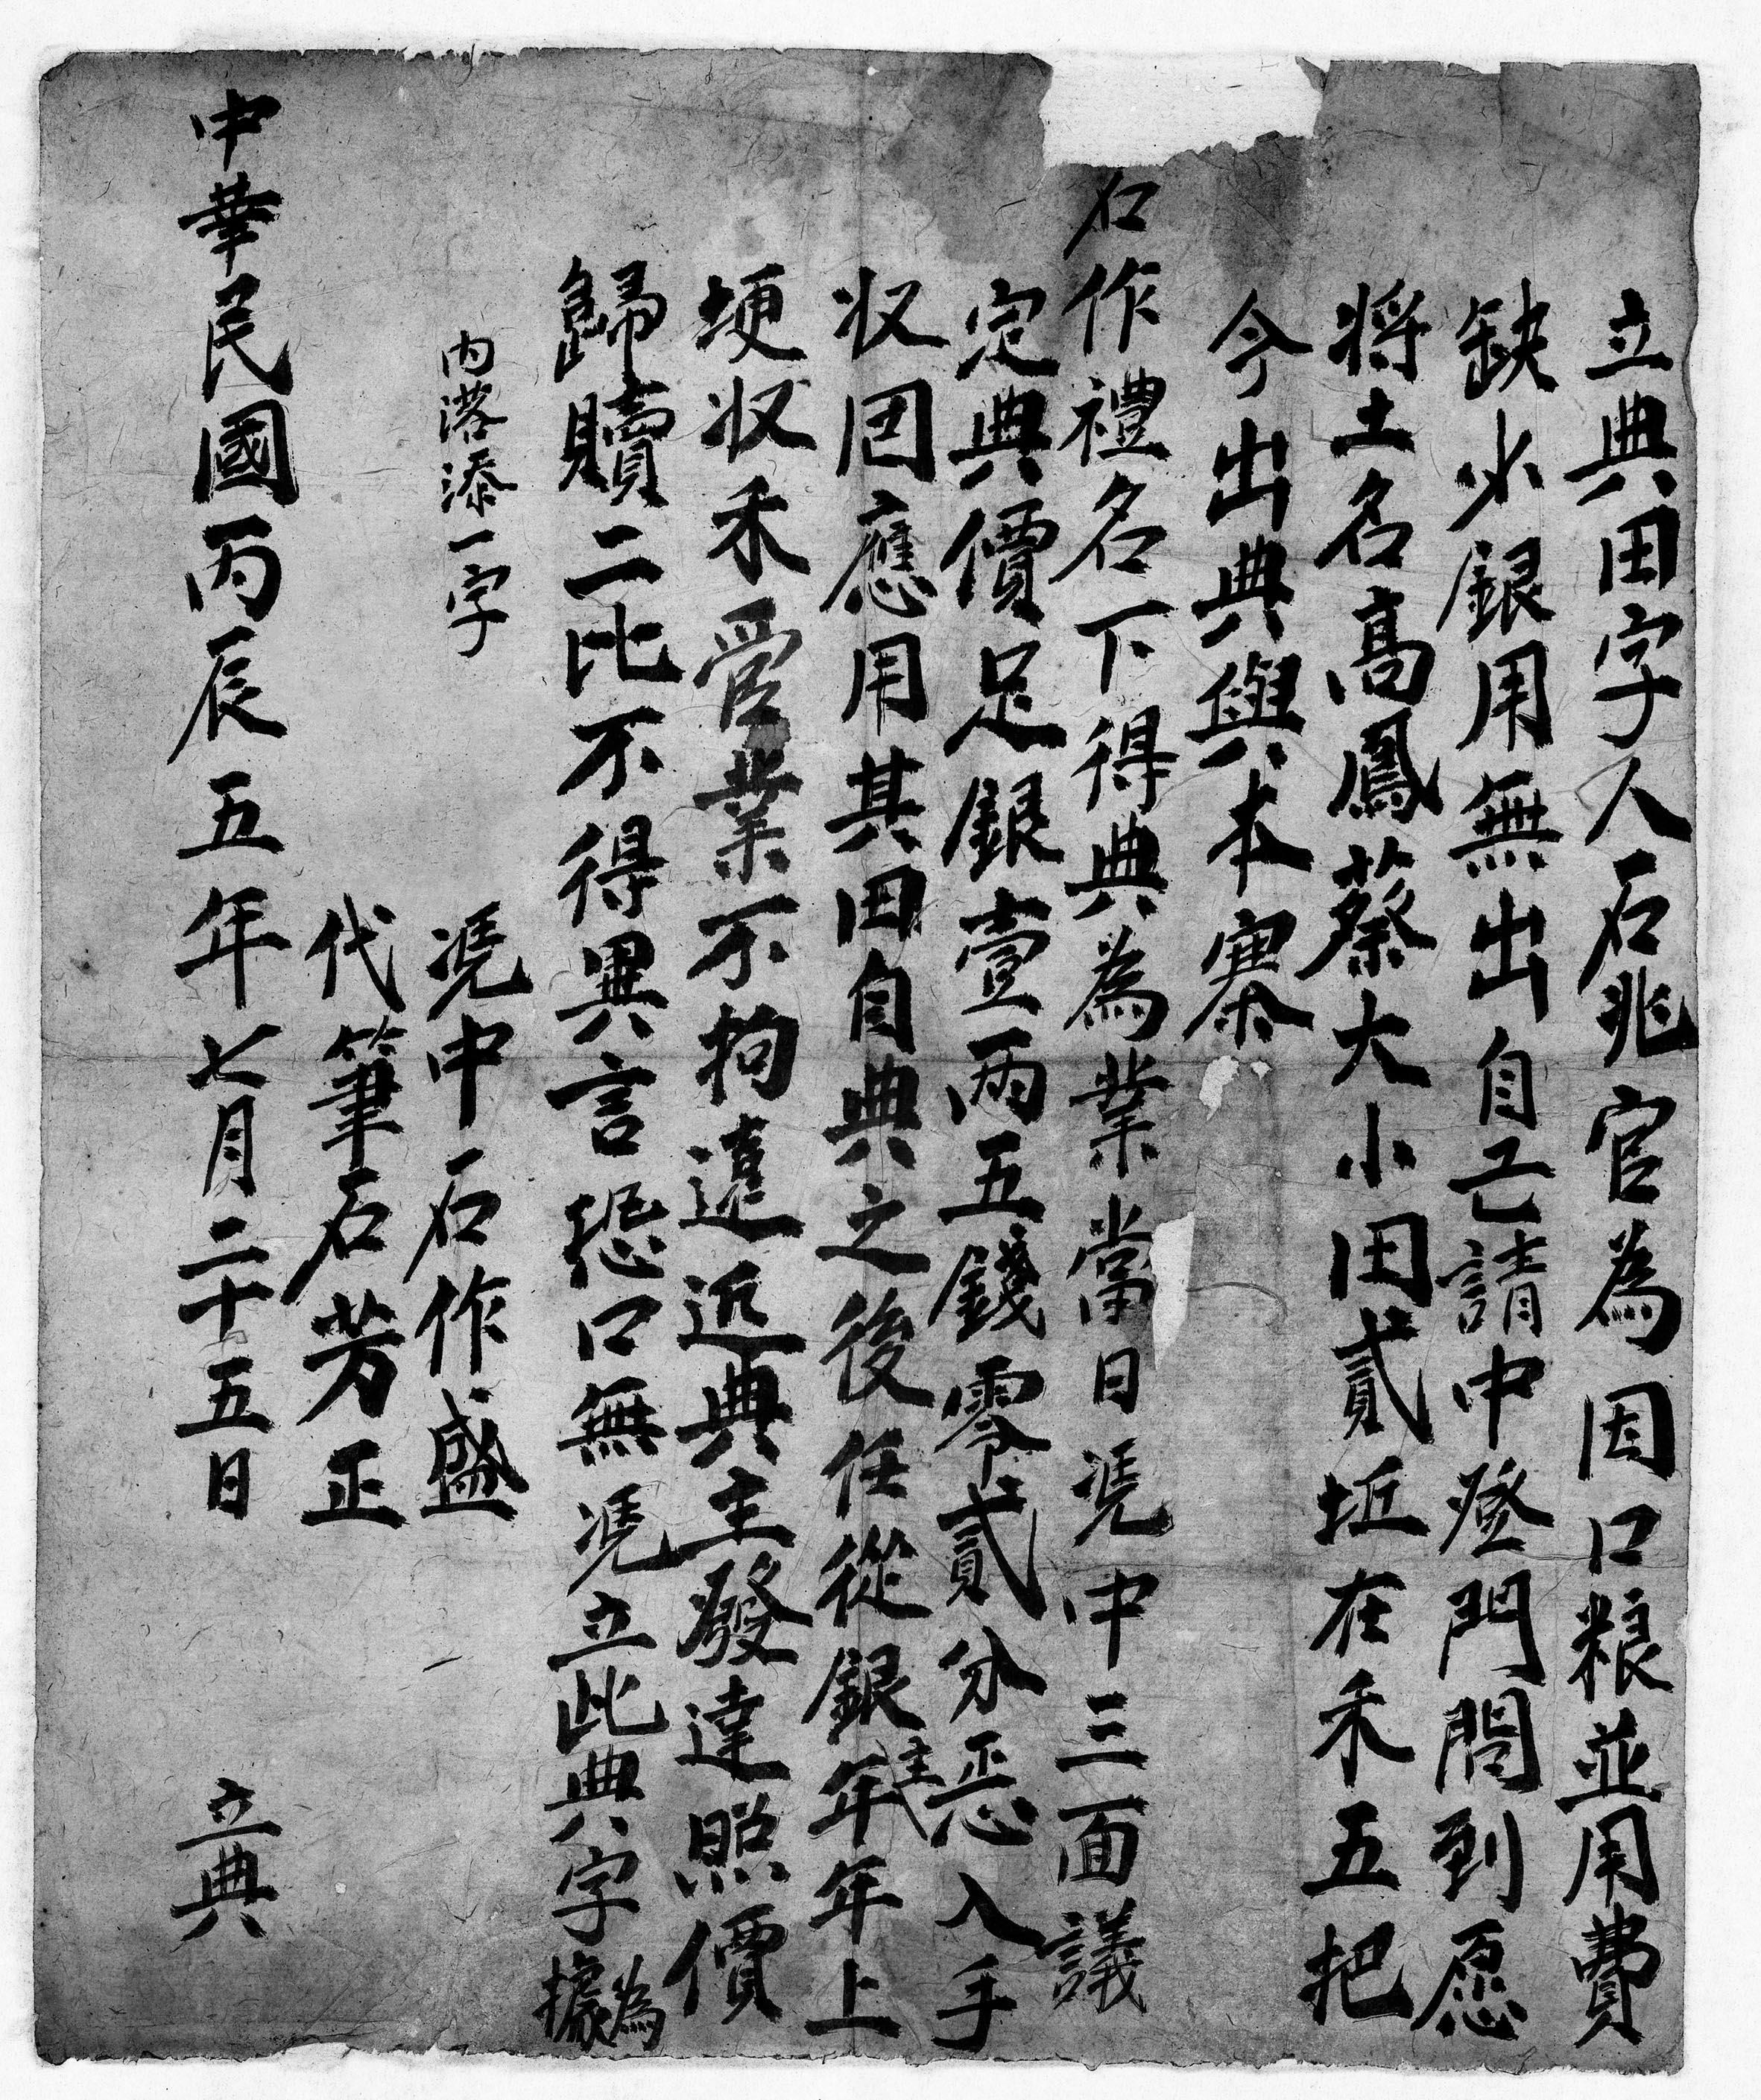 立典田字人石兆官為因口粮並用費
缺少銀用無出自己請中登門問到愿
将土名高鳳蔡大小田貳坵在禾五把
今出典與本寨
石作禮名下得典為業當日凴中三面議
定典價足銀壹両五錢零貳分㤪入手
収囬應用其田自典之後任從銀主年年上
埂収禾管業不拘遠近典主發達照價
歸贖二比不得異言恐口無凴立此典字為據
内落添一字
凴中石作盛
代筆石芳正
中華民國丙辰五年七月二十五日 立典